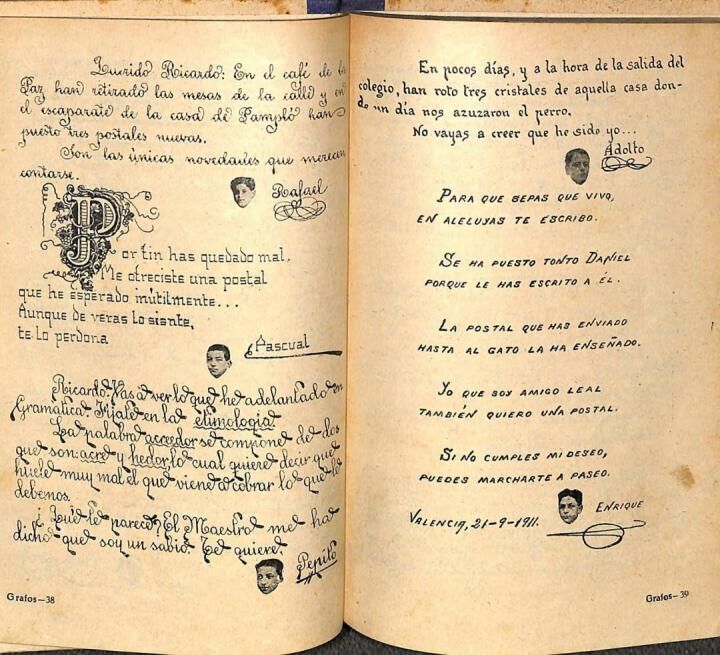 Querido Ricardo: En el café de la
Paz han retirado las mesas de la calle y en
el escaparate de la casa de Pampló han
puesto tres postales nuevas.
Son las únicas novedades que merecen
contarse.
Rafael
Por fin has quedado mal.
Me ofreciste una postal
que he esperado inútilmente...
Aunque de veras lo siente,
te lo perdona
Pascual
Ricardo: Vas a ver lo que he adelantado en
Gramática. Fíjate en la etimología.
La palabra acreedor se compone de dos
que son: acre y hedor, lo cual quiere decir que
huele muy mal el que viene a cobrar lo que le
debemos.
¿Qué te parece? El Maestro me ha
dicho que soy un sabio. Te quiere,
Pepito
Grafos—38
En pocos días, y a la hora de la salida del
colegio, han roto tres cristales de aquella casa don-
de un día nos azuzaron el perro.
No vayas a creer que he sido yo...
Adolfo
PARA QUE SEPAS QUE VIVO,
EN ALELUYAS TE ESCRIBO.
SE HA PUESTO TONTO DANIEL
PORQUE LE HAS ESCRITO A ÉL.
LA POSTAL QUE HAS ENVIADO
HASTA AL GATO LA HA ENSEÑADO.
YO QUE SOY AMIGO LEAL
TAMBIÉN QUIERO UNA POSTAL.
SI NO CUMPLES MI DESEO,
PUEDES MARCHARTE A PASEO.
ENRIQUE
VALENCIA, 21-9-1911.
Grafos—39